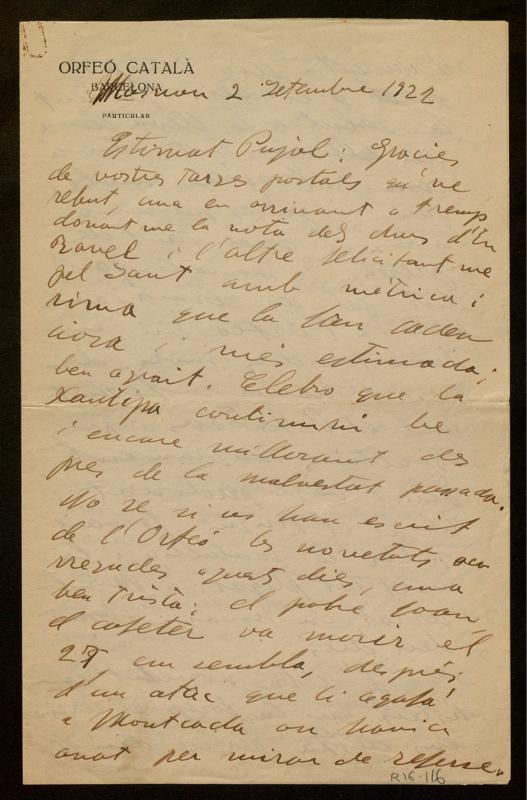 ORFEÓ CATALÀ
BARCELONA
PARTICULAR
Masnou 2 Setembre 1922
Estimat Pujol: Gràcies
de vostres targes postals qu'he
rebut, una en arrivant a tremp
donant me la nota dels diners d'En
Ravel i l'altre felicitant me
pel Sant amb mètrica i
rima que la fan caden
ciosa i més estimada;
ben agrait. Celebro que la
Xantipa continui be
i encare millorant des
pres de la malvestat passada.
No se si us han escrit
de l'Orfeó les novetats ocu
rregudes aquets dies, una
ben trista; el pobre Joan
el cafeter va morir el
27, em sembla, després
d'un atac que li agafá
a Montcada on havia
anat per mirar de referse.
R16-116